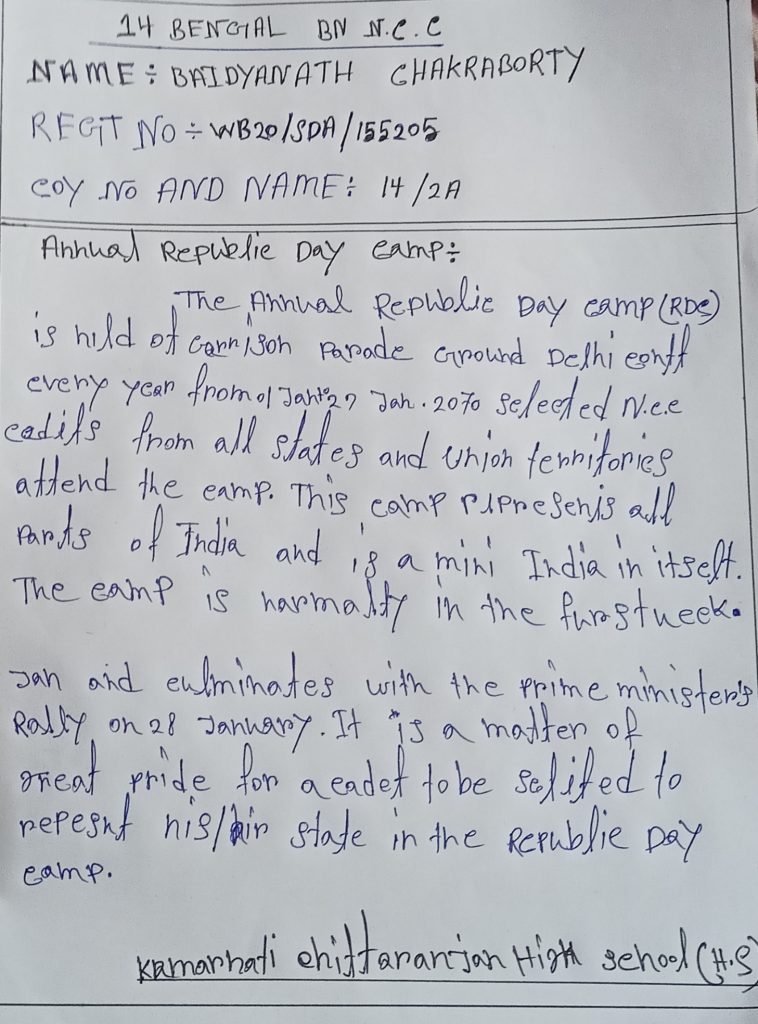 14 BENGAL BN N.C.C
NAME÷ BAIDYANATH CHAKRABORTY
REGT NO ÷ WB20/SDA/155205
COY NO AND NAME÷ 14/2A
Annual Republic Day camp÷
The Annual Republic Day camp (RDC)
is hild of Garrison Parade Ground Delhi
every year from 01 Jan to 29 Jan. 2070 selected N.C.C
cadits from all states and Union territories
attend the camp. This camp ripresents all
Parts of India and is a mini India in itself.
The camp is narmally in the furstweek.
Jan and culminates with the prime minister's
Rally on 28 January. It is a matter of
great pride for a cadet to be selited to
repesnt his/hir state in the Republic Day
camp.
Kamarhati chittaranjan High school (H.S